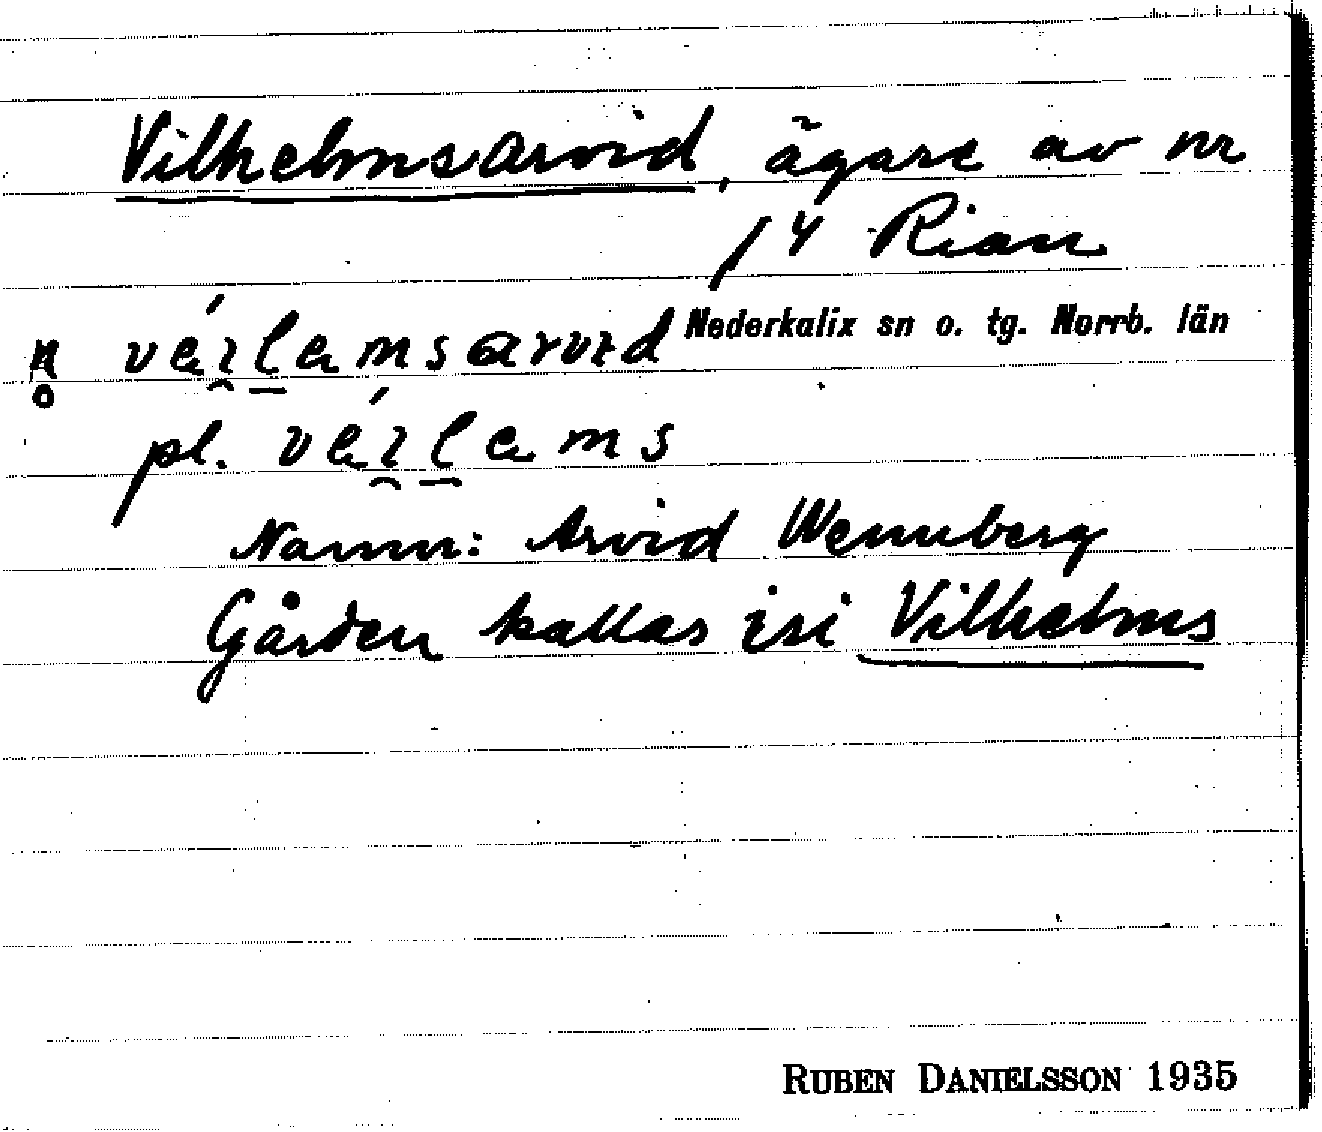 Vilhelmsarvid, ägare av nr
14 Rian
Nederkalix sn o. tg. Norrb. län
pl.
Namn: Arvid Wennberg
Gården kallas isi Vilhelms
RUBEN DANIELSSON 1935